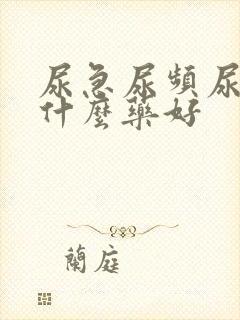 尿急尿頻尿
什麼藥好
蘭庭